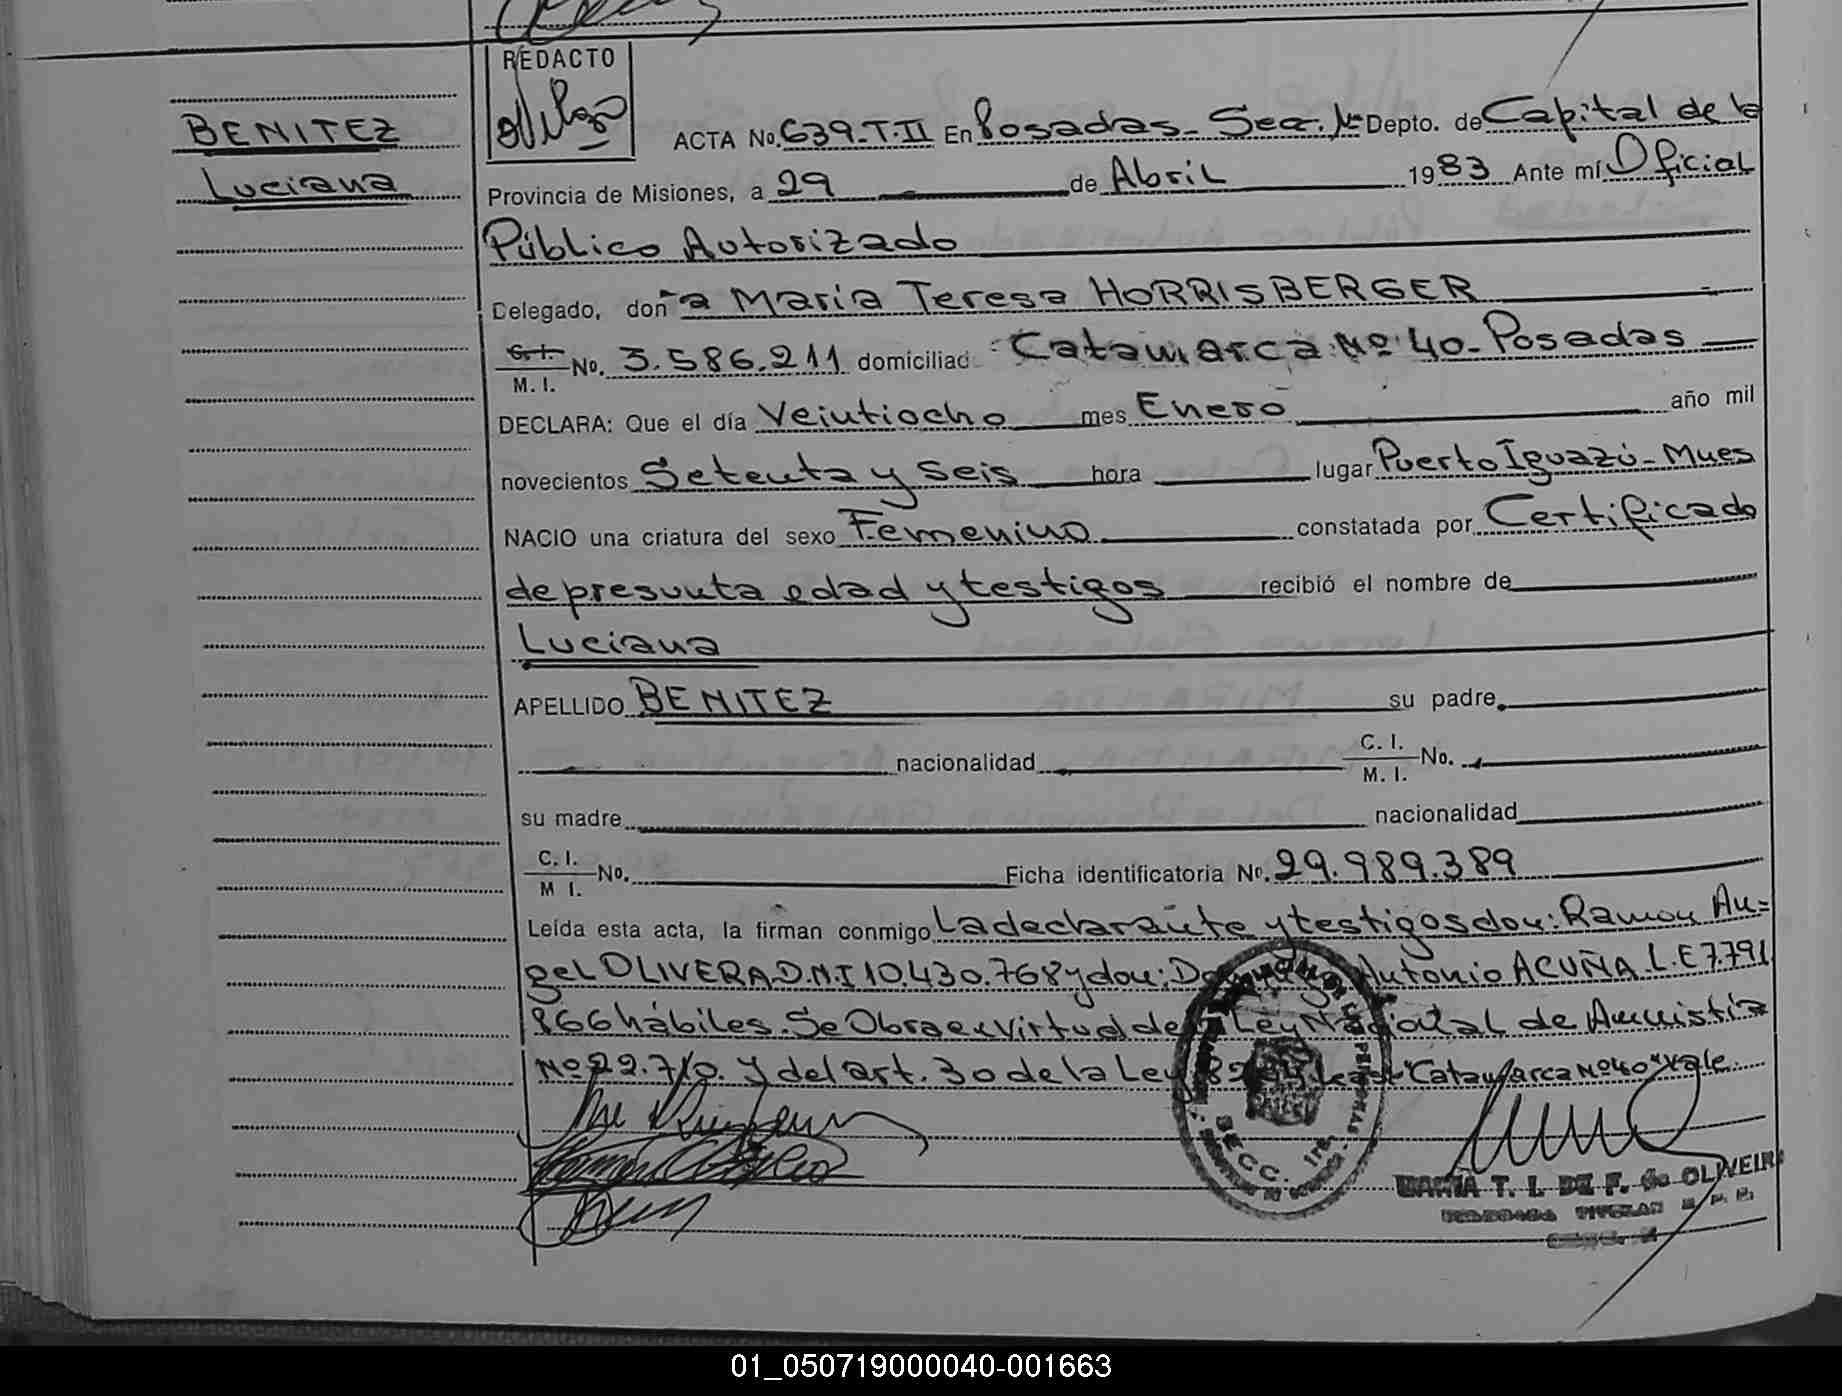 REDACTO
BENITEZ
Luciana
ACTA No. 639-T-II En Posadas- Secc. 1ª Depto. de Capital de la
Provincia de Misiones, a 29 de Abril 1983 Ante mí Oficial
Público Autorizado
Delegado, doña Maria Teresa HORRISBERGER
C. I. M. I. No. 3.586.211 domiciliad Catamarca Nº 40- Posadas
DECLARA: Que el día Veintiocho mes Enero año mil
novecientos Setenta y Seis hora lugar Puerto Iguazú- Mnes
NACIO una criatura del sexo Femenino constatada por Certificado
de presunta edad y testigos recibió el nombre de
Luciana
APELLIDO BENITEZ su padre
nacionalidad C. I. M. I. No.
su madre nacionalidad
C. I. M I. No. Ficha identificatoria No. 29.989.389
Leída esta acta, la firman conmigo La declarante y testigos don: Ramon An=
gel OLIVERA D.N.I 10.430.768 y don: Antonio ACUÑA L.E 7.791
866 hábiles. Se Obra en virtud de Ley Nacional de Amnistia
Nº 22.710. Y del art. 30 de la Ley "Catamarca Nº 40" Vale.
SECC.
PERSONAS
MARIA T. I. DE F. de OLIVEIRA
01_050719000040-001663